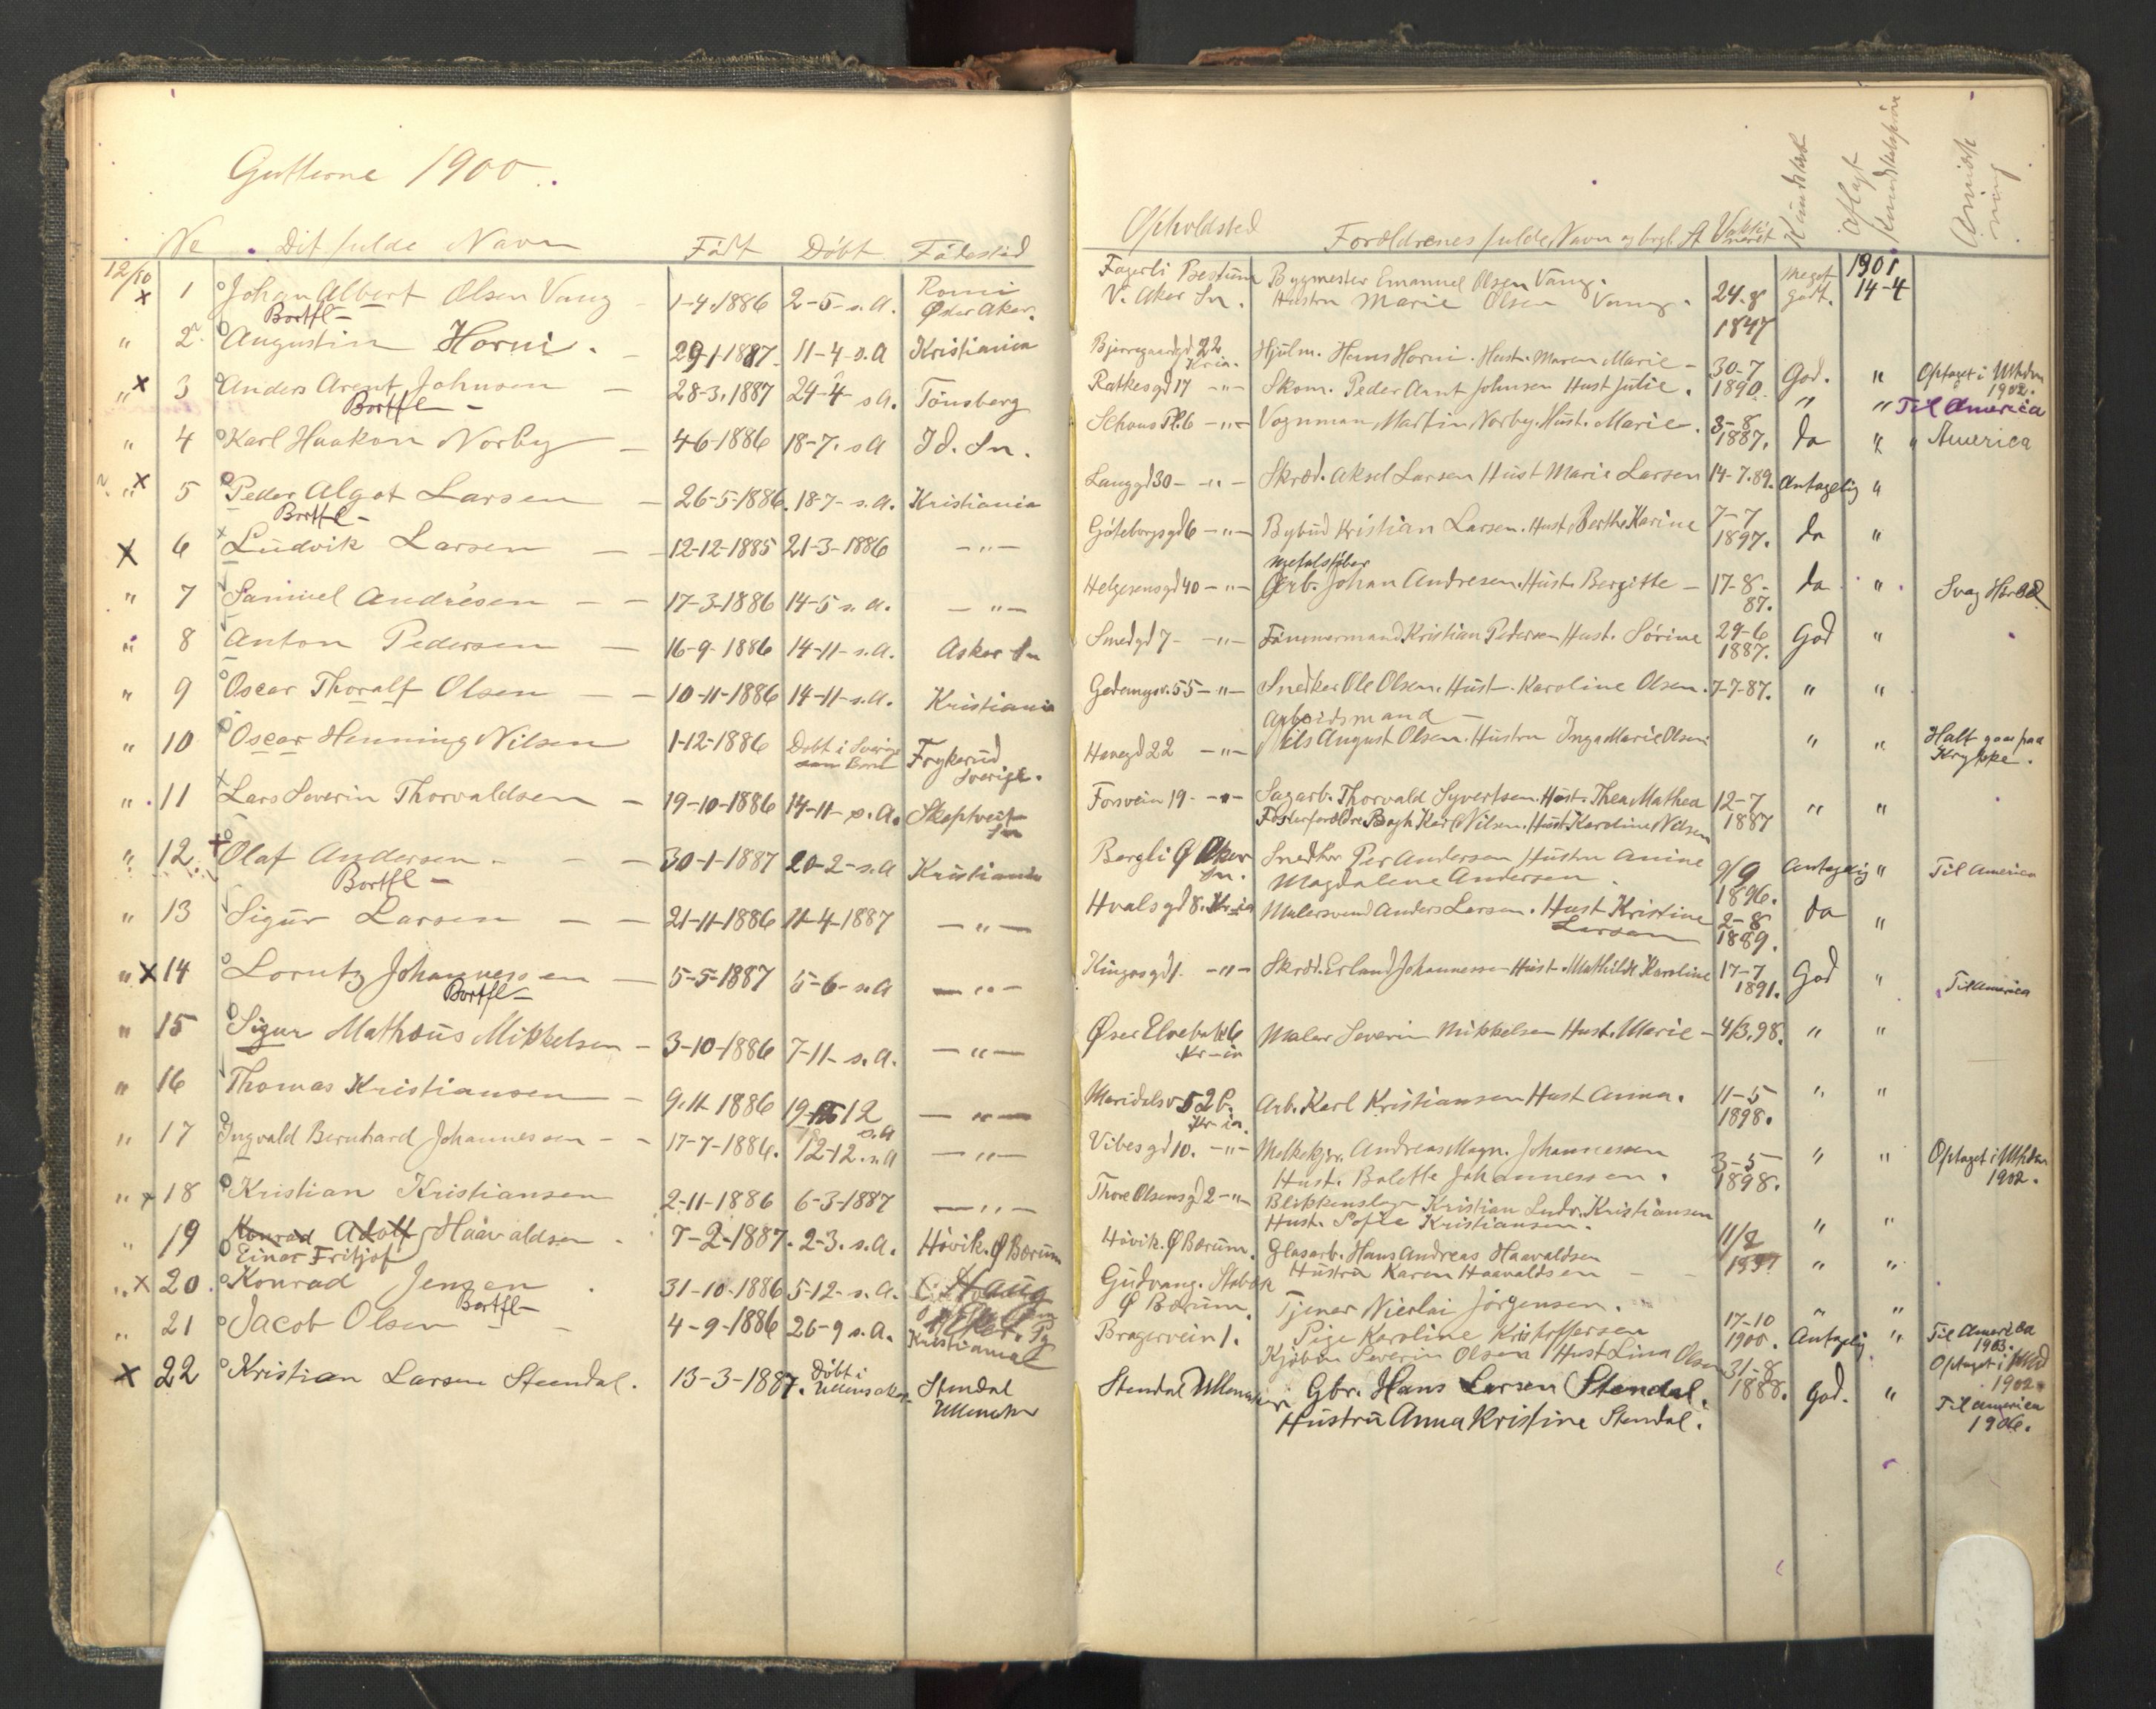 Gutterne 1900.
No Dit fulde Navn Født Døbt Fødested
12/10
x 1 Johan Albert Olsen Vang 1-4-1886 2-5- s.A. Østre Aker.
Bortfl-
" 2 Augustin Horni. - 29-1-1887. 11-4- s.A Kristiania
" x 3 Anders Arent Johnsen - 28-3-1887 24-4- s.A. Tönsberg
Bortfl-
" 4 Karl Haakon Norby - 4-6-1886 18-7. s.A Id. Sn.
" x 5 Peder Algot Larsen - 26-5-1886. 18-7- s.A. Kristiania
Bortfl-
x 6 Ludvik Larsen - - 12-12-1885 21-3-1886 - " -
" 7 Samuel Andrésen - - 17-3-1886 14-5 s.A. - " -
" 8 Anton Pedersen - 16-9-1886 14-11- s.A. Asker Sn
" 9 Oscar Thoralf Olsen - - 10-11-1886 14-11- s.A. Kristiania
" 10 Oscar Henning Nilsen 1-12-1886 Döbt i Sverige som Barn Frykerud Sverige.
" 11 Lars Severin Thorvaldsen - 19-10-1886 14-11- s.A. Skeptveit Sn
" 12. Olaf Andersen - - 30-1-1887 20-2- s.A Kristiania
Bortfl-
" 13 Sigur Larsen - - 21-11-1886 11-4-1887 - " -
" x 14 Lorntz Johannessen - 5-5-1887 5-6- s.A - " -
Bortfl-
" 15 Sigur Mathæus Mikkelsen - 3-10-1886 7-11- s.A. - " -
" 16 Thomas Kristiansen - 9-11-1886 12 s.A - " -
" 17 Ingvald Bernhard Johannessen - - 17-7-1886. 12-12. s.A - " -
" x 18 Kristian Kristiansen 2-11-1886 6-3-1887 - " -
" 19 Konrad Adolf Haavaldsen. 7-2-1887. 2-3. s.A. Hövik. Ø Bærum
Einar Fritjof
" x 20. Konrad Jensen. 31-10-1886 5-12- s.A. Haug
Bortfl-
" 21 Jacob Olsen - 4-9-1886 26-9 s.A. Kristiania
x 22 Kristian Larsen Stendal. 13-3-1887. Döbt i Ullensaker Stendal
Ullensaker
Opholdsted Forældrenes fulde Navn og brgl. St Vaksineret Kundskab Aflagt Kundskabsprøve Anmerkning
Fagerli Bestum Bygmester Emanuel Olsen Vang. Meget 1901
V. Aker Sn. Hustru Marie Olsen Vang. 24-8 godt. 14-4
1847
Bjerregaardgd 22 Kria. Hjulm. Hans Horni. Hust. Maren Marie - 30-7 God. " Optaget i Mhdn
Ratkesgd 17 - " - Skom. Peder Arnt Johnsen Hust Julie. 1890 " " 1902.
Til America
Schous Pl. 6 - " - Vognman Martin Norby. Hust. Marie. 3-8 1887. da " " America
Langgd 30 - " - Skræd. Aksel Larsen Hust Marie Larsen 14-7.89. Antagelig "
Göteborgsgd 6 - " - Bybud Kristian Larsen. Hust. Berthe Karine 7-7 1897. da "
Metalstöber
Helgesensgd 40 - " - Arb. Johan Andresen. Hust. Bergitte - 17-8-87. da " Svag Hørsel
Smedgd 7 - " - Tömmermand Kristian Pedersen Hust. Sörine 29-6 1887. God "
55 - " - Snedker Ole Olsen. Hust. Karoline Olsen. 7-7-87. " "
Arbeidsmand
22 - " - Nils August Olsen. Hustru Inga Marie Olsen " " Halt gaar paa Krykke.
Forsvein 19 - " - Sagarb. Thorvald Syvertsen. Hust. Thea Mathea 12-7 1887 " "
Fosterforældre Karl Nilsen. Hust. Karoline Nilsen
Bergli Ø Aker Sn. Snedker Per Andersen Hustru Anine
Magdalene Andersen. 9/9 1896. Antagelig " Til America
Hvalsgd 8. Kr-ia Malersvend Anders Larsen. Hust Kristine Larsen 2-8 1889. da "
Kingosgd 1. - " - Skræd. Erland Johannessen Hust. Mathilde Karoline 17-7 1891. God " Til America
Øvre Elvebak 6 Kr-ia Maler Severin Mikkelsen Hust. Marie - 4/3.98. " "
Maridalsv 52 b. Kr-ia. Arb. Karl Kristiansen Hust Anna. 11-5 1898. " "
Vibesgd 10. - " - Andreas Magn. Johannessen
Hust. Bolette Johannessen. 3-5 1898. " " Optaget i Mhdn 1902.
Thore Olsensgd 2 - " - Blikkenslager Kristian Ludv. Kristiansen
Hust. Sofie Kristiansen. " "
Hövik. Ø Bærum. Glasarb. Hans Andreas Haavaldsen
Hustru Karen Haavaldsen - - " "
Gudvang. Stabæk
Ø Bærum. Tjener Nicolai Jörgensen.
Pige Karoline Kristoffersen 17-10 1900. Antagelig " Til America 1903.
Bragervein 1. Severin Olsen Hust Lina Olsen 31-8 1888. Optaget i Mhd 1902
Stendal Ullensaker Gbr. Hans Larsen Stendal. God. " Til America 1906.
Hustru Anna Kristine Stendal.